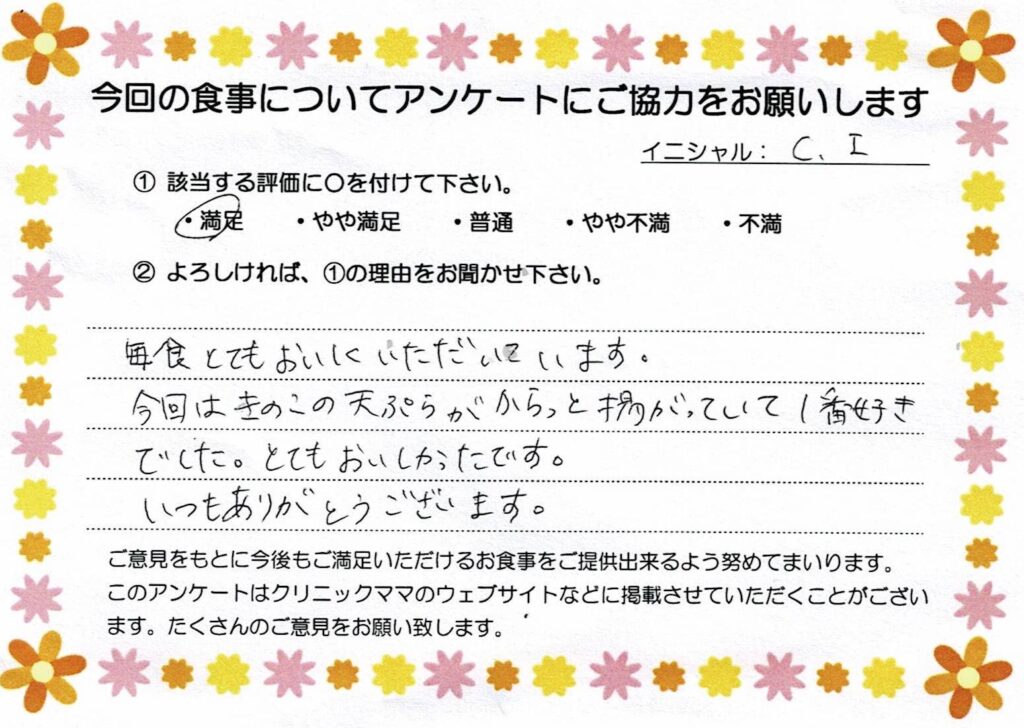 今回の食事についてアンケートにご協力をお願いします
イニシャル： C、I
① 該当する評価に〇を付けて下さい。
・満足 ・やや満足 ・普通 ・やや不満 ・不満
② よろしければ、①の理由をお聞かせ下さい。
毎食とてもおいしくいただいています。
今回はきのこの天ぷらがからっと揚がっていて1番好き
でした。とてもおいしかったです。
いつもありがとうございます。
ご意見をもとに今後もご満足いただけるお食事をご提供出来るよう努めてまいります。
このアンケートはクリニックママのウェブサイトなどに掲載させていただくことがござい
ます。たくさんのご意見をお願い致します。